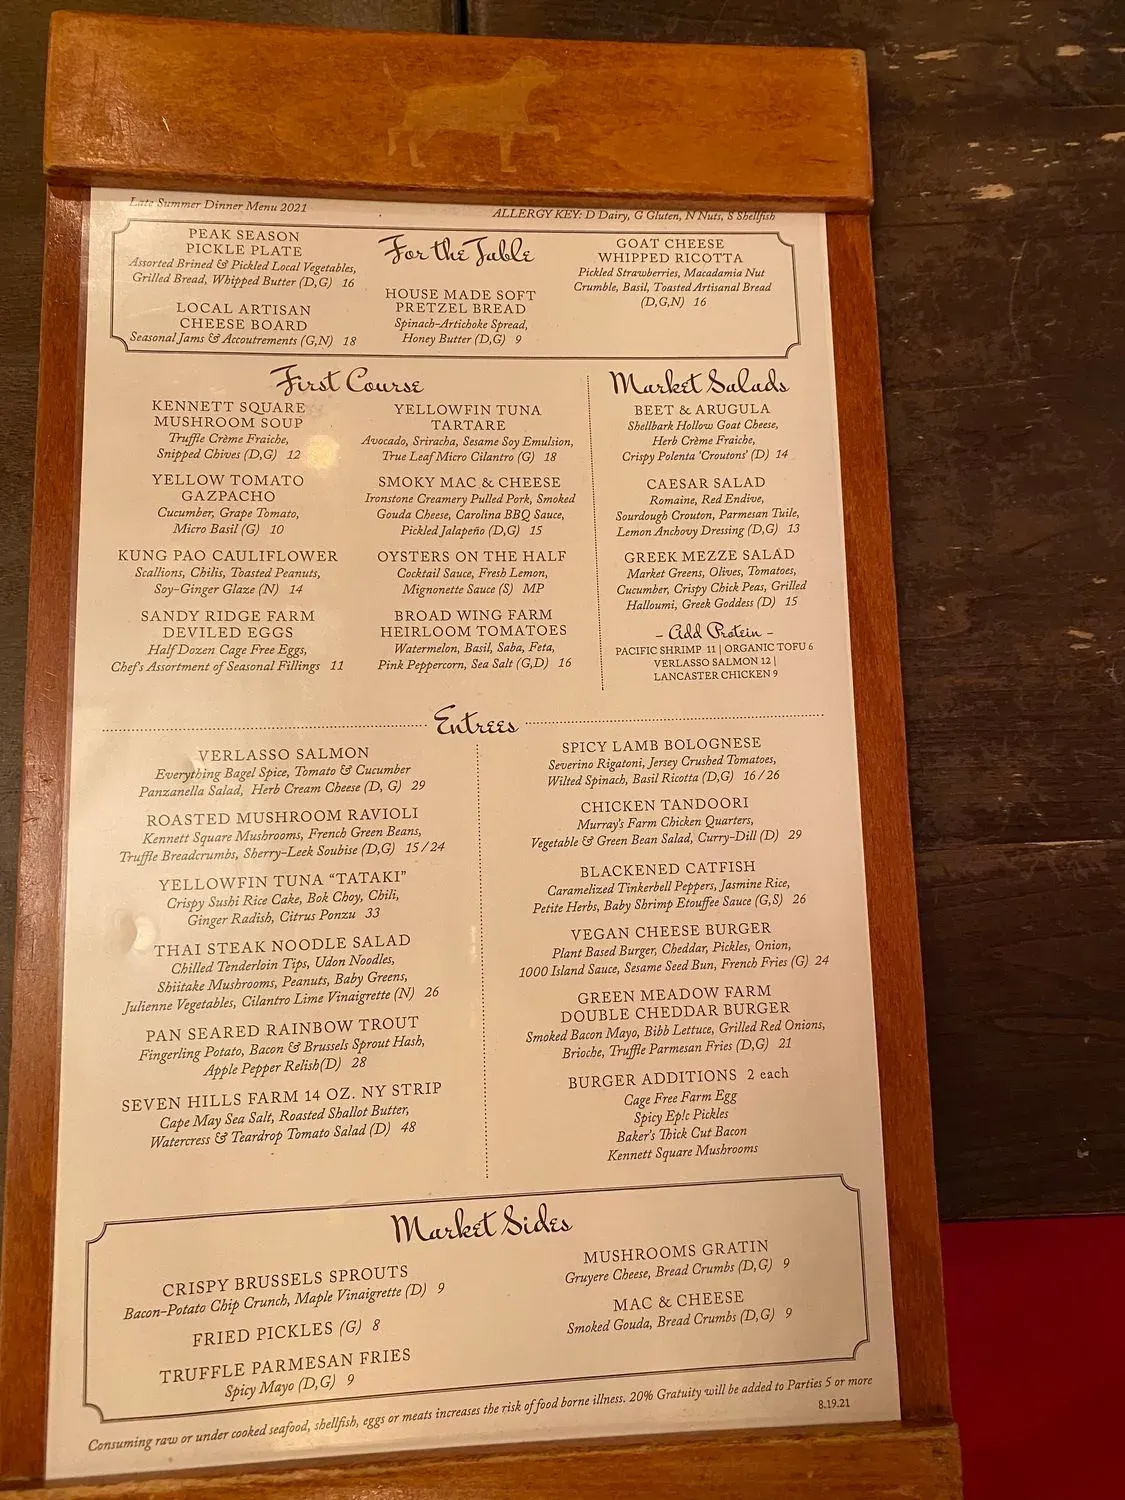 Late Summer Dinner Menu 2021
ALLERGY KEY: D Dairy, G Gluten, N Nuts, S Shellfish
For the Table
PEAK SEASON
PICKLE PLATE
Assorted Brined & Pickled Local Vegetables,
Grilled Bread, Whipped Butter (D,G) 16
LOCAL ARTISAN
CHEESE BOARD
Seasonal Jams & Accoutrements (G,N) 18
HOUSE MADE SOFT
PRETZEL BREAD
Spinach-Artichoke Spread,
Honey Butter (D,G) 9
GOAT CHEESE
WHIPPED RICOTTA
Pickled Strawberries, Macadamia Nut
Crumble, Basil, Toasted Artisanal Bread
(D,G,N) 16
First Course
KENNETT SQUARE
MUSHROOM SOUP
Truffle Crème Fraiche,
Snipped Chives (D,G) 12
YELLOW TOMATO
GAZPACHO
Cucumber, Grape Tomato,
Micro Basil (G) 10
KUNG PAO CAULIFLOWER
Scallions, Chilis, Toasted Peanuts,
Soy-Ginger Glaze (N) 14
SANDY RIDGE FARM
DEVILED EGGS
Half Dozen Cage Free Eggs,
Chef's Assortment of Seasonal Fillings 11
YELLOWFIN TUNA
TARTARE
Avocado, Sriracha, Sesame Soy Emulsion,
True Leaf Micro Cilantro (G) 18
SMOKY MAC & CHEESE
Ironstone Creamery Pulled Pork, Smoked
Gouda Cheese, Carolina BBQ Sauce,
Pickled Jalapeño (D,G) 15
OYSTERS ON THE HALF
Cocktail Sauce, Fresh Lemon,
Mignonette Sauce (S) MP
BROAD WING FARM
HEIRLOOM TOMATOES
Watermelon, Basil, Saba, Feta,
Pink Peppercorn, Sea Salt (G,D) 16
Market Salads
BEET & ARUGULA
Shellbark Hollow Goat Cheese,
Herb Crème Fraiche,
Crispy Polenta 'Croutons' (D) 14
CAESAR SALAD
Romaine, Red Endive,
Sourdough Crouton, Parmesan Tuile,
Lemon Anchovy Dressing (D,G) 13
GREEK MEZZE SALAD
Market Greens, Olives, Tomatoes,
Cucumber, Crispy Chick Peas, Grilled
Halloumi, Greek Goddess (D) 15
- Add Protein -
PACIFIC SHRIMP 11 | ORGANIC TOFU 6
VERLASSO SALMON 12 |
LANCASTER CHICKEN 9
Entrees
VERLASSO SALMON
Everything Bagel Spice, Tomato & Cucumber
Panzanella Salad, Herb Cream Cheese (D, G) 29
ROASTED MUSHROOM RAVIOLI
Kennett Square Mushrooms, French Green Beans,
Truffle Breadcrumbs, Sherry-Leek Soubise (D,G) 15 / 24
YELLOWFIN TUNA "TATAKI"
Crispy Sushi Rice Cake, Bok Choy, Chili,
Ginger Radish, Citrus Ponzu 33
THAI STEAK NOODLE SALAD
Chilled Tenderloin Tips, Udon Noodles,
Shiitake Mushrooms, Peanuts, Baby Greens,
Julienne Vegetables, Cilantro Lime Vinaigrette (N) 26
PAN SEARED RAINBOW TROUT
Fingerling Potato, Bacon & Brussels Sprout Hash,
Apple Pepper Relish(D) 28
SEVEN HILLS FARM 14 OZ. NY STRIP
Cape May Sea Salt, Roasted Shallot Butter,
Watercress & Teardrop Tomato Salad (D) 48
SPICY LAMB BOLOGNESE
Severino Rigatoni, Jersey Crushed Tomatoes,
Wilted Spinach, Basil Ricotta (D,G) 16 / 26
CHICKEN TANDOORI
Murray's Farm Chicken Quarters,
Vegetable & Green Bean Salad, Curry-Dill (D) 29
BLACKENED CATFISH
Caramelized Tinkerbell Peppers, Jasmine Rice,
Petite Herbs, Baby Shrimp Etouffee Sauce (G,S) 26
VEGAN CHEESE BURGER
Plant Based Burger, Cheddar, Pickles, Onion,
1000 Island Sauce, Sesame Seed Bun, French Fries (G) 24
GREEN MEADOW FARM
DOUBLE CHEDDAR BURGER
Smoked Bacon Mayo, Bibb Lettuce, Grilled Red Onions,
Brioche, Truffle Parmesan Fries (D,G) 21
BURGER ADDITIONS 2 each
Cage Free Farm Egg
Spicy Ep!c Pickles
Baker's Thick Cut Bacon
Kennett Square Mushrooms
Market Sides
CRISPY BRUSSELS SPROUTS
Bacon-Potato Chip Crunch, Maple Vinaigrette (D) 9
FRIED PICKLES (G) 8
TRUFFLE PARMESAN FRIES
Spicy Mayo (D,G) 9
MUSHROOMS GRATIN
Gruyere Cheese, Bread Crumbs (D,G) 9
MAC & CHEESE
Smoked Gouda, Bread Crumbs (D,G) 9
Consuming raw or under cooked seafood, shellfish, eggs or meats increases the risk of food borne illness. 20% Gratuity will be added to Parties 5 or more
8.19.21